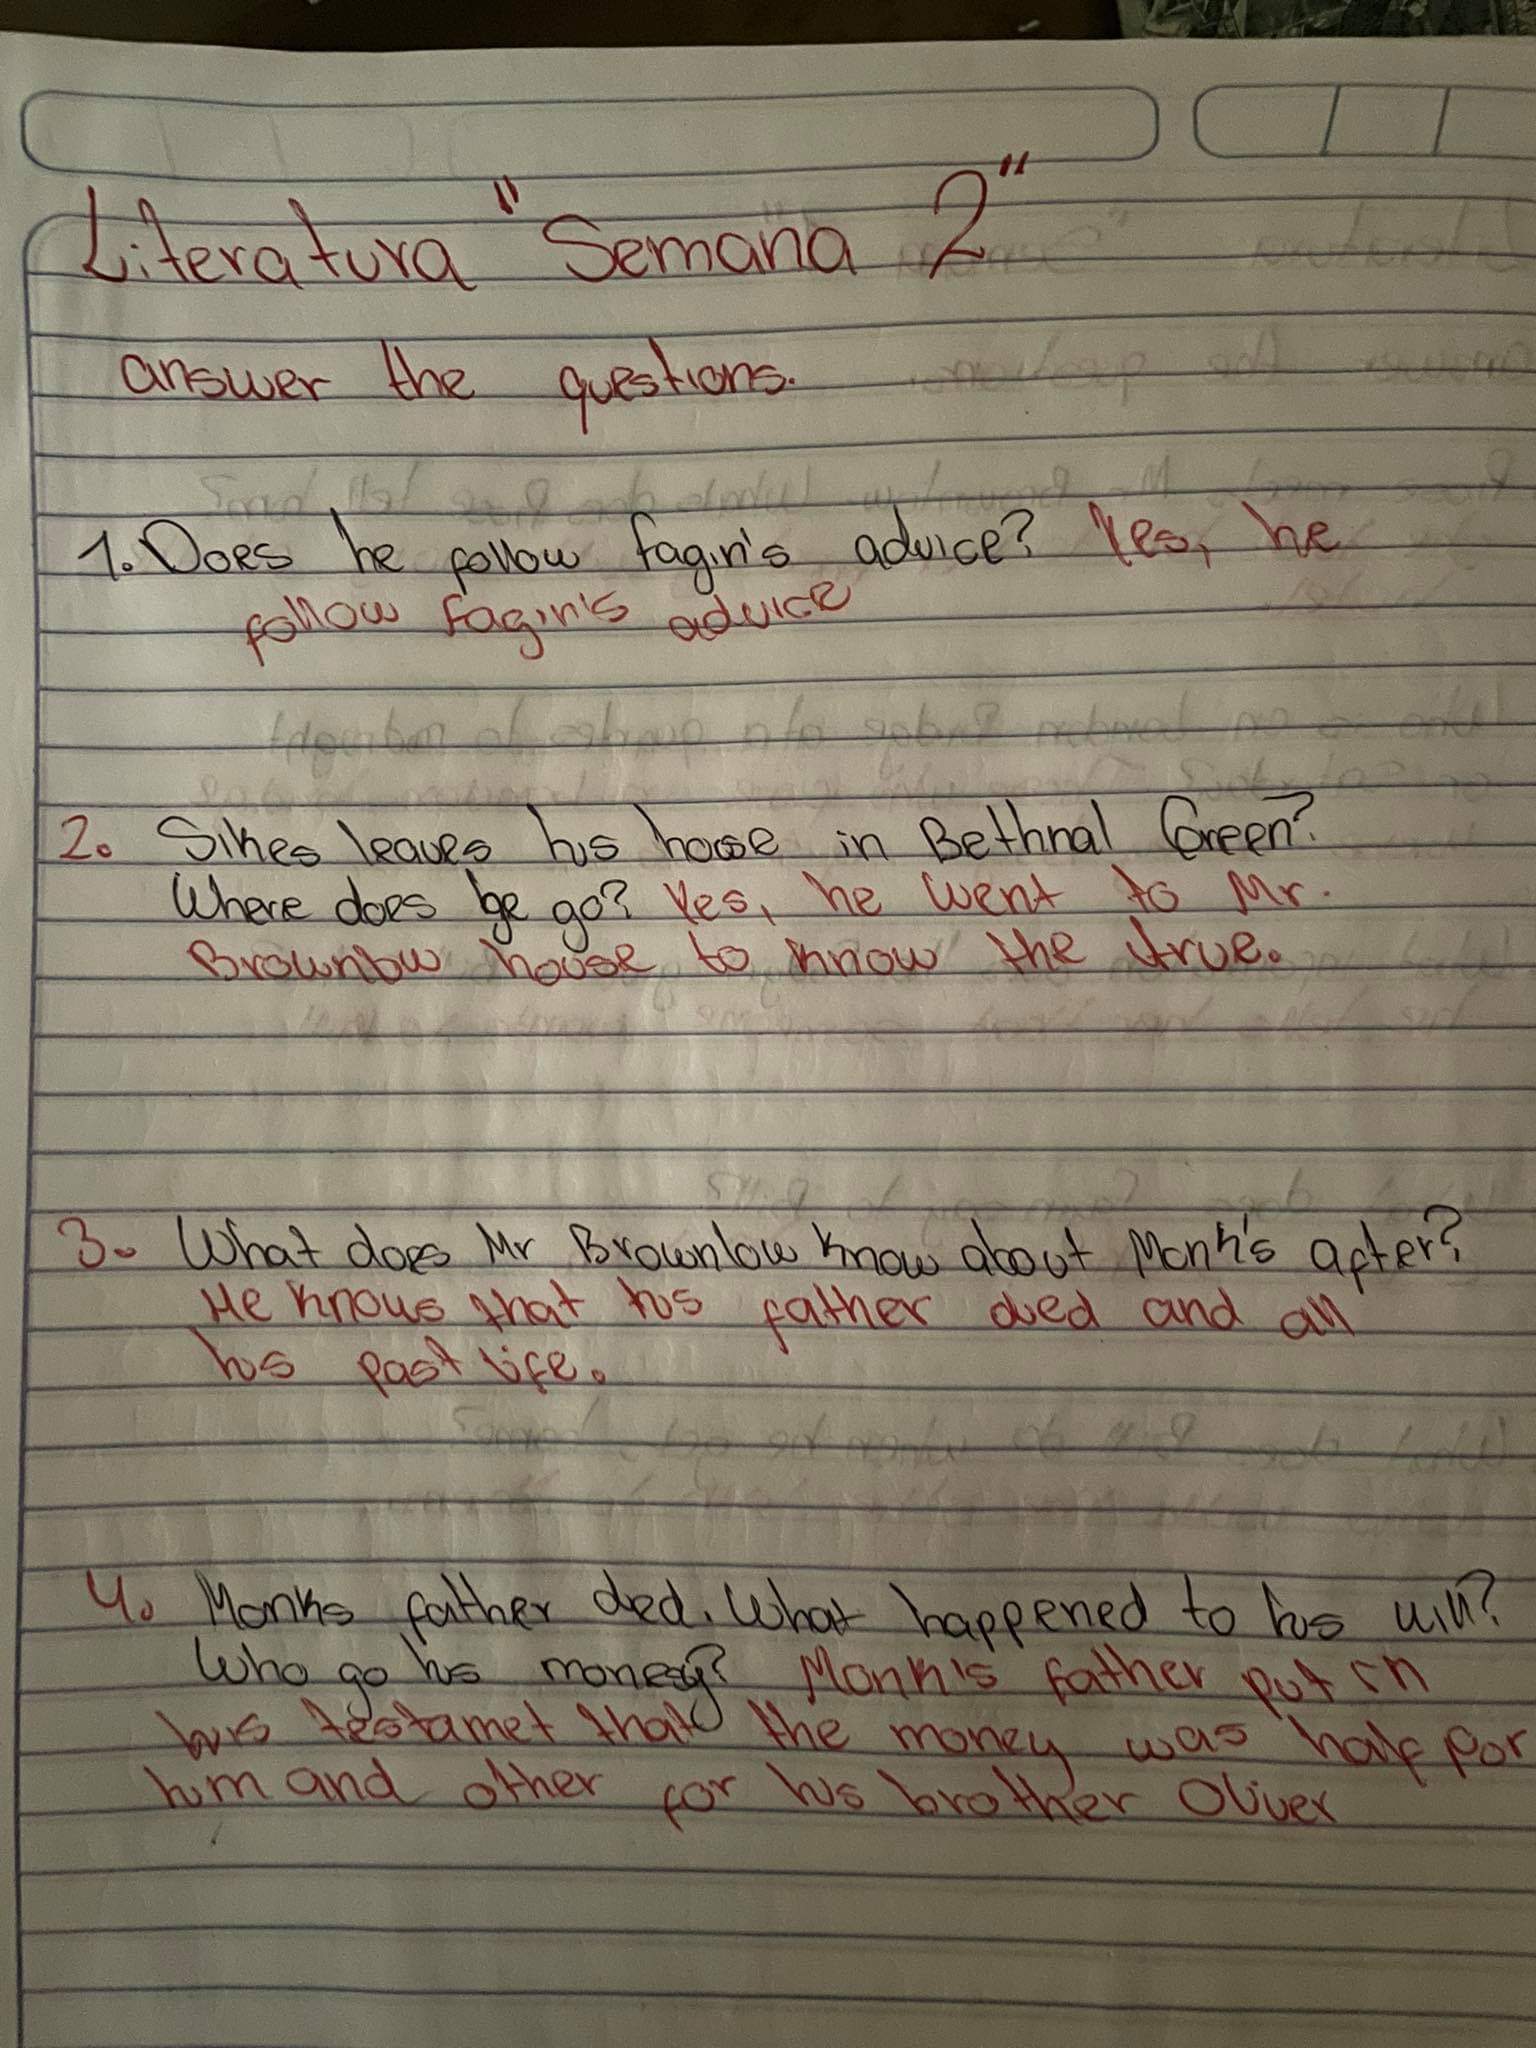 Literatura "Semana 2"
answer the questions.
1. Does he follow fagin's advice? Yes, he
follow fagin's advice
2. Sikes leaves his house in Bethnal Green?
Where does he go? Yes, he went to Mr.
Brownlow house to know the true.
3. What does Mr Brownlow know about Monk's after?
He knows that his father died and all
his past life.
4. Monks father died. What happened to his will?
Who go his money? Monk's father put in
his testamet that the money was half for
him and other for his brother Oliver